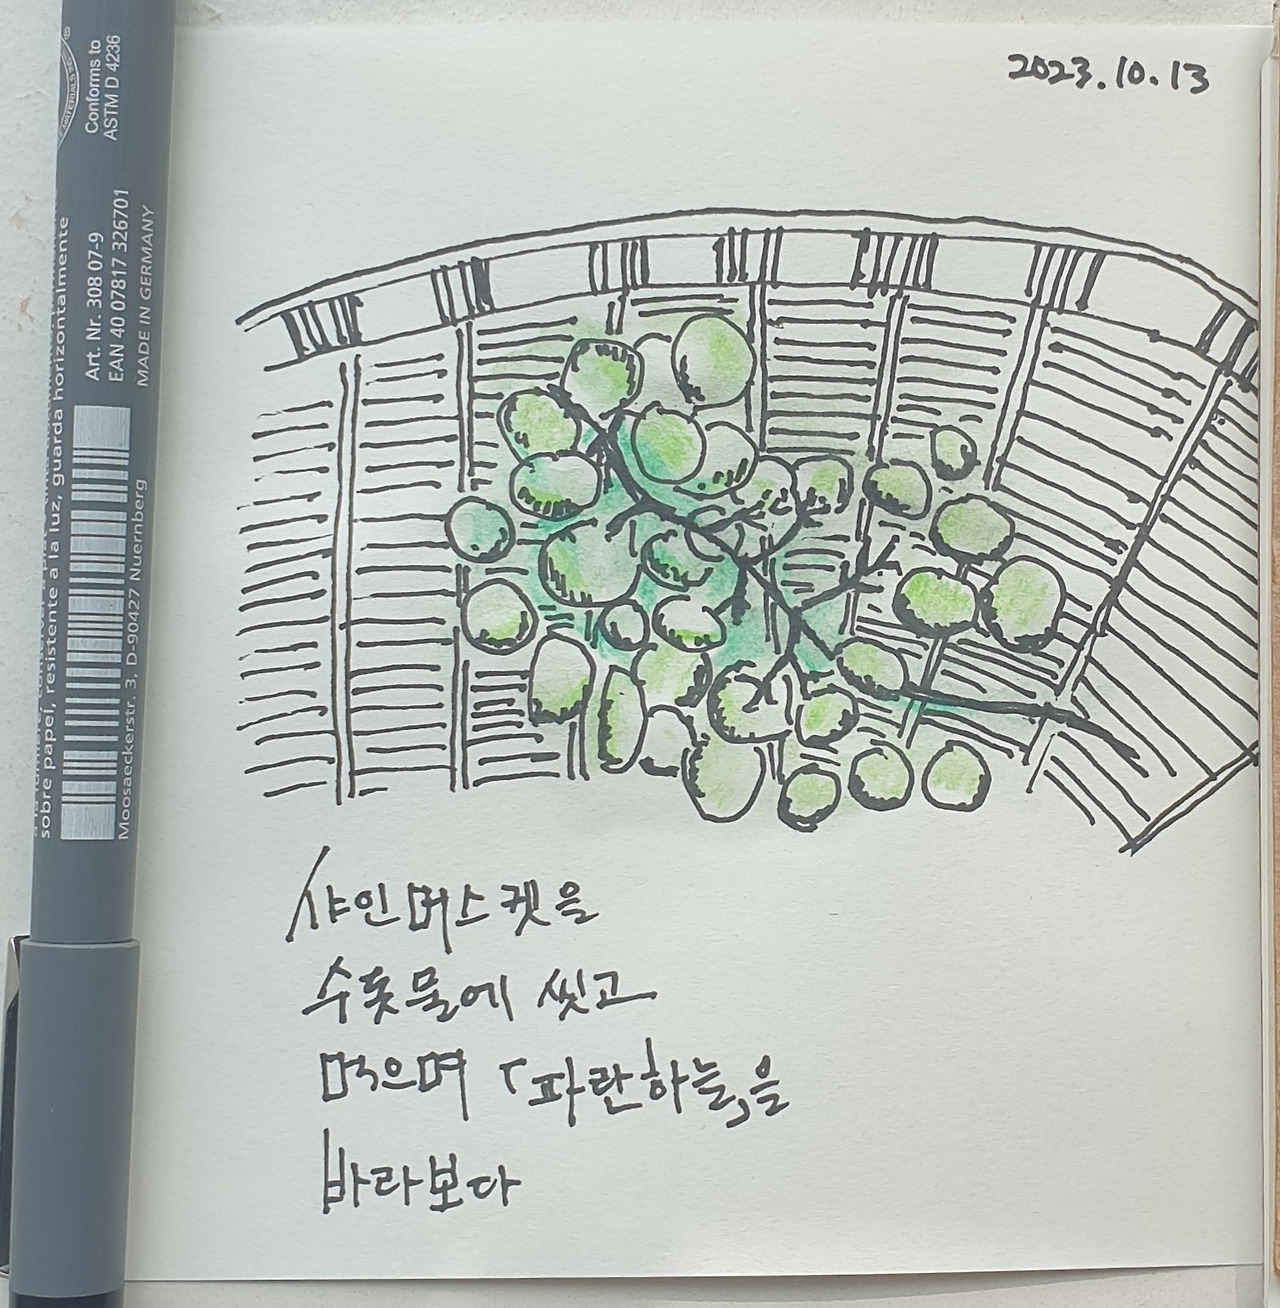 2023.10.13
샤인머스켓을
수돗물에 씻고
먹으며 「파란하늘」을
바라보다
Conforms to
ASTM D 4236
Art. Nr. 308 07-9
EAN 40 07817 326701
MADE IN GERMANY
sobre papel, resistente a la luz, guarda horizontalmente
Moosaeckerstr. 3, D-90427 Nuernberg